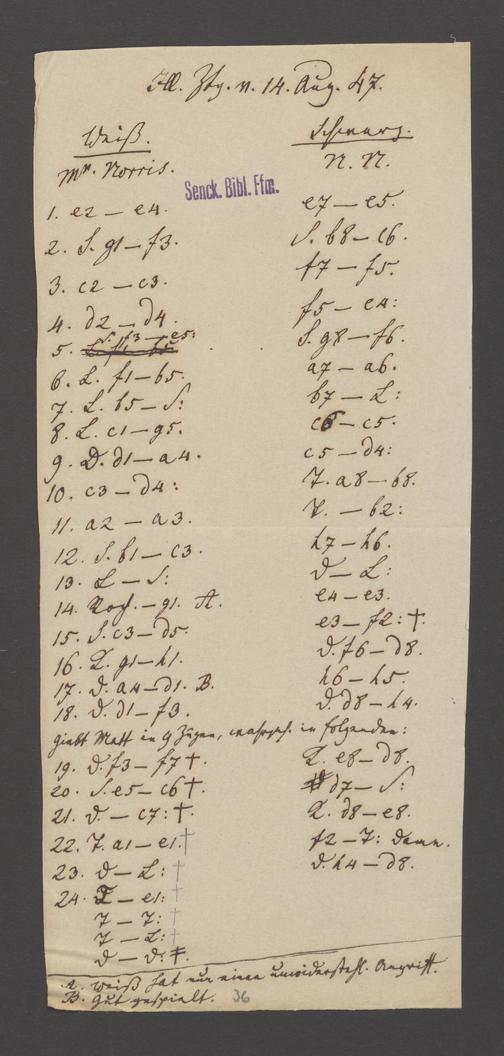 Ill. Ztg. v. 14. Aug. 47.
Weiß. Schwarz.
Mr. Norris. N. N.
Senck. Bibl. Ffm.
1. e2 — e4. e7 — e5.
2. S. g1 — f3. S. b8 — c6.
3. c2 — c3. f7 — f5.
4. d2 — d4. f5 — e4:
5. S. f3 — e5: S. g8 — f6.
6. L. f1 — b5. a7 — a6.
7. L. b5 — S: b7 — L:
8. L. c1 — g5. c6 — c5.
9. D. d1 — a4. c5 — d4:
10. c3 — d4: T. a8 — b8.
11. a2 — a3. T. — b2:
12. S. b1 — c3. h7 — h6.
13. L — S: D — L:
14. Roch. — g1. A. e4 — e3.
15. S. c3 — d5. e3 — f2: †.
16. K. g1 — h1. D. f6 — d8.
17. D. a4 — d1. B. h6 — h5.
18. D. d1 — f3. D. d8 — h4.
giebt Matt in 9 Zügen, wahrsch. in folgenden:
19. D. f3 — f7 †. K. e8 — d8.
20. S. e5 — c6 †. d7 — S:
21. D. — c7: †. K. d8 — e8.
22. T. a1 — e1. † f2 — T: Dame.
23. D — L: † D. h4 — d8.
24. T — e1: †
T — T: †
T — L: †
D — D: ‡.
A. Weiß hat nun einen unwiderstehl. Angriff.
B. Gut gespielt. 36